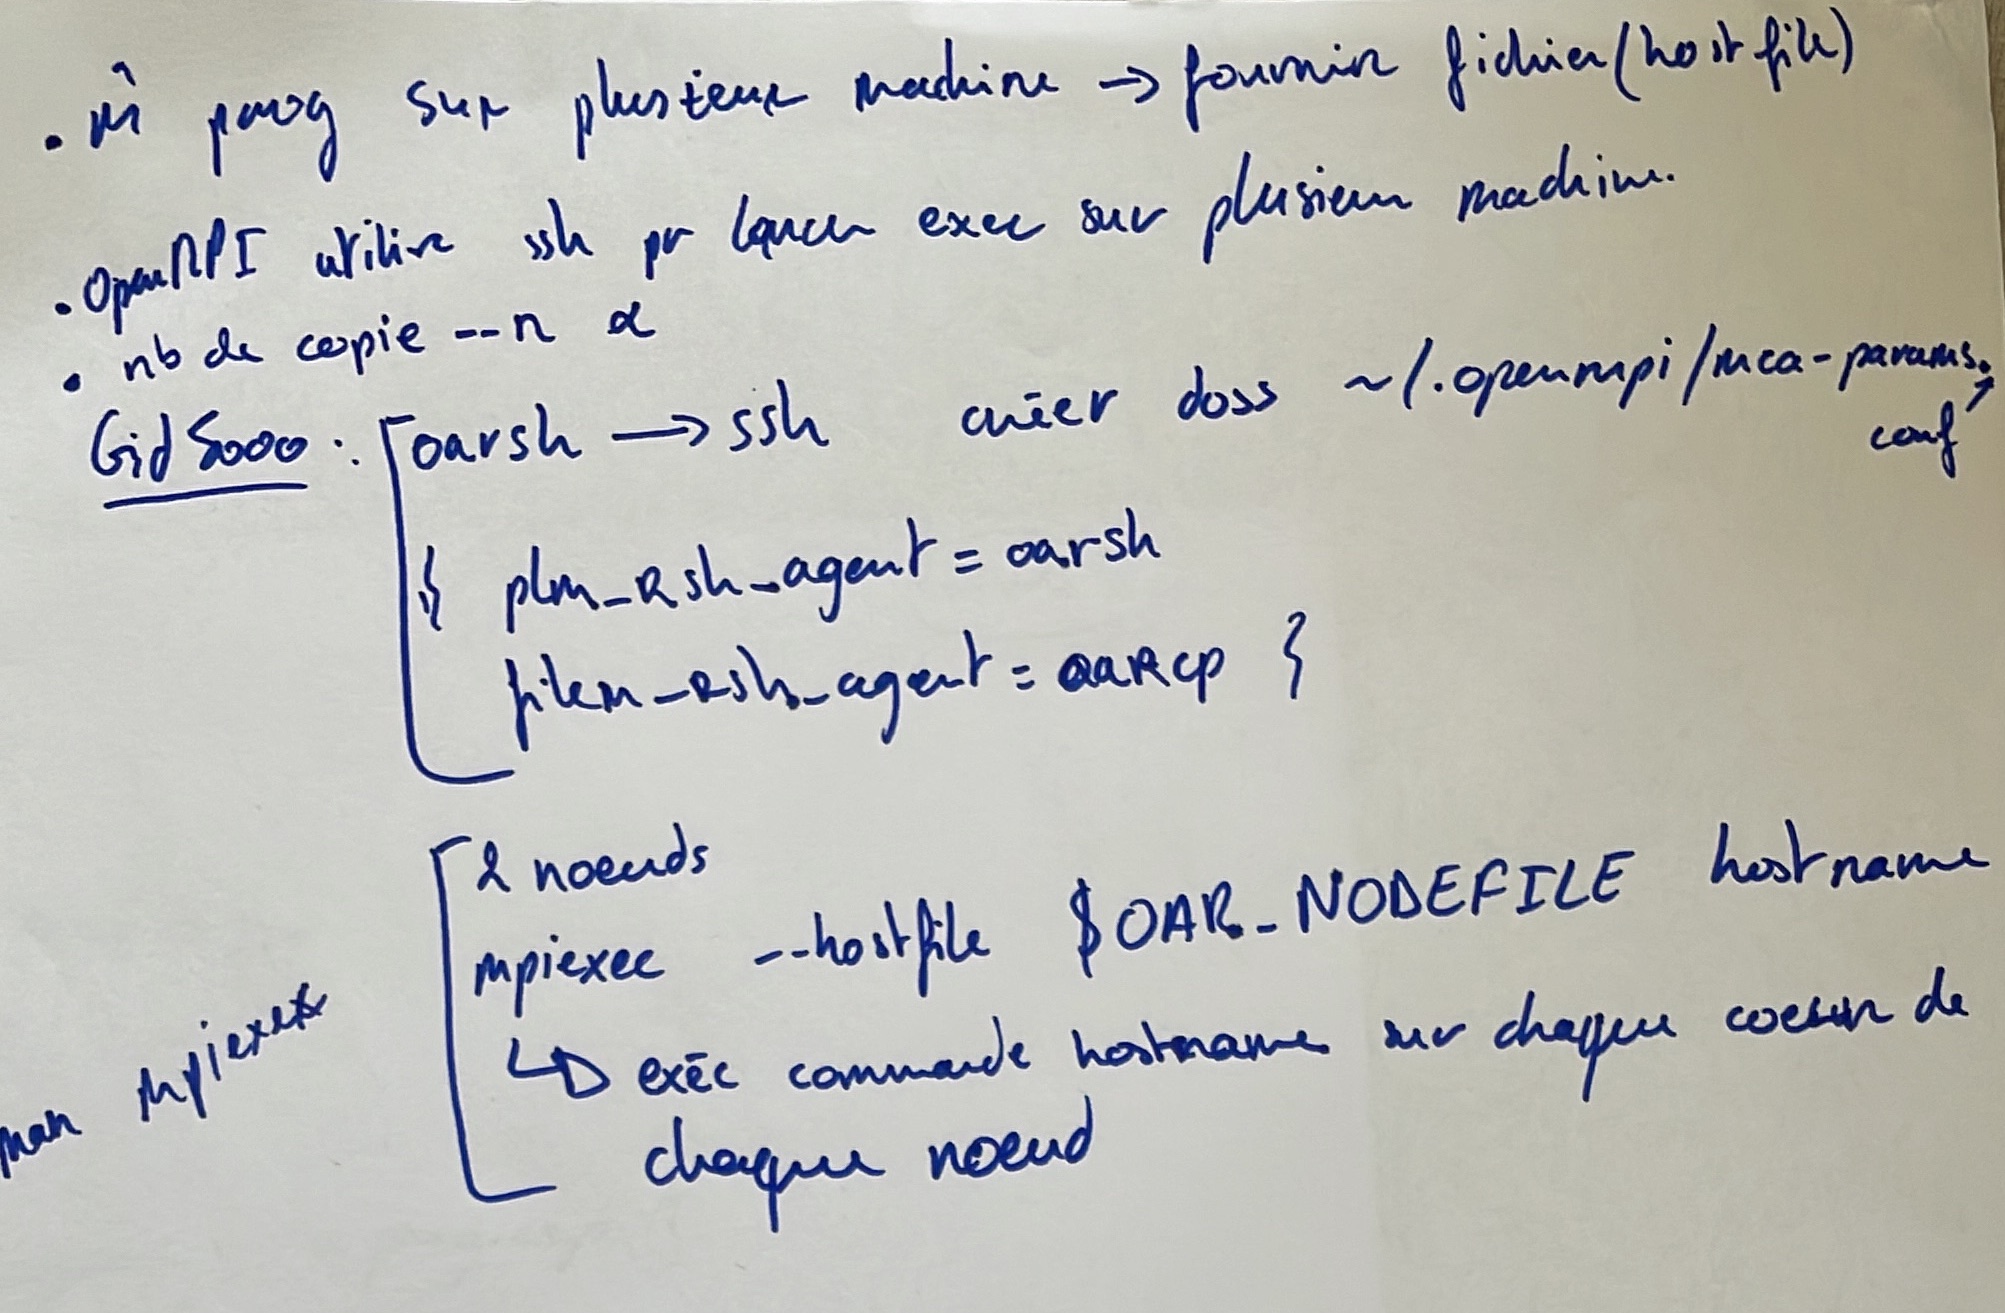 . m̂ prog sur plusieur machine → fournir fichier (hostfile)
. OpenMPI utilise ssh pr lancer exec sur plusieur machine.
. nb de copie --n α
Gid5000 : [ oarsh → ssh créer doss ~/.openmpi/mca-params.conf
{ plm_rsh_agent = oarsh
filem_rsh_agent = oarcp }
[ 2 noeuds
mpiexec --hostfile $OAR_NODEFILE hostname
↳ exéc commande hostname sur chaque coeur de
chaque noeud
man mpiexec